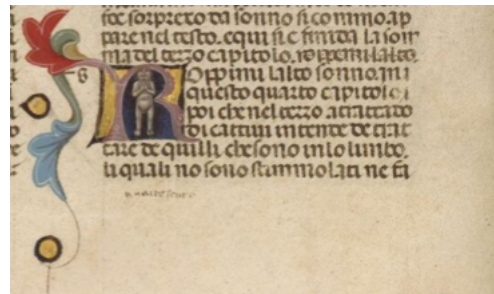 foe sorpreso da sonno si commo ap
pare nel testo. equi si e finida la som
ma del terzo capitolo. roppemi lalto.
Roppimi lalto sonno. mi
questo quarto capitolo i
poi che nel terzo a tractado
di cattiui intende de trac
tare de quilli che sono in lo limbo.
li quali no sono stimmolati ne fi